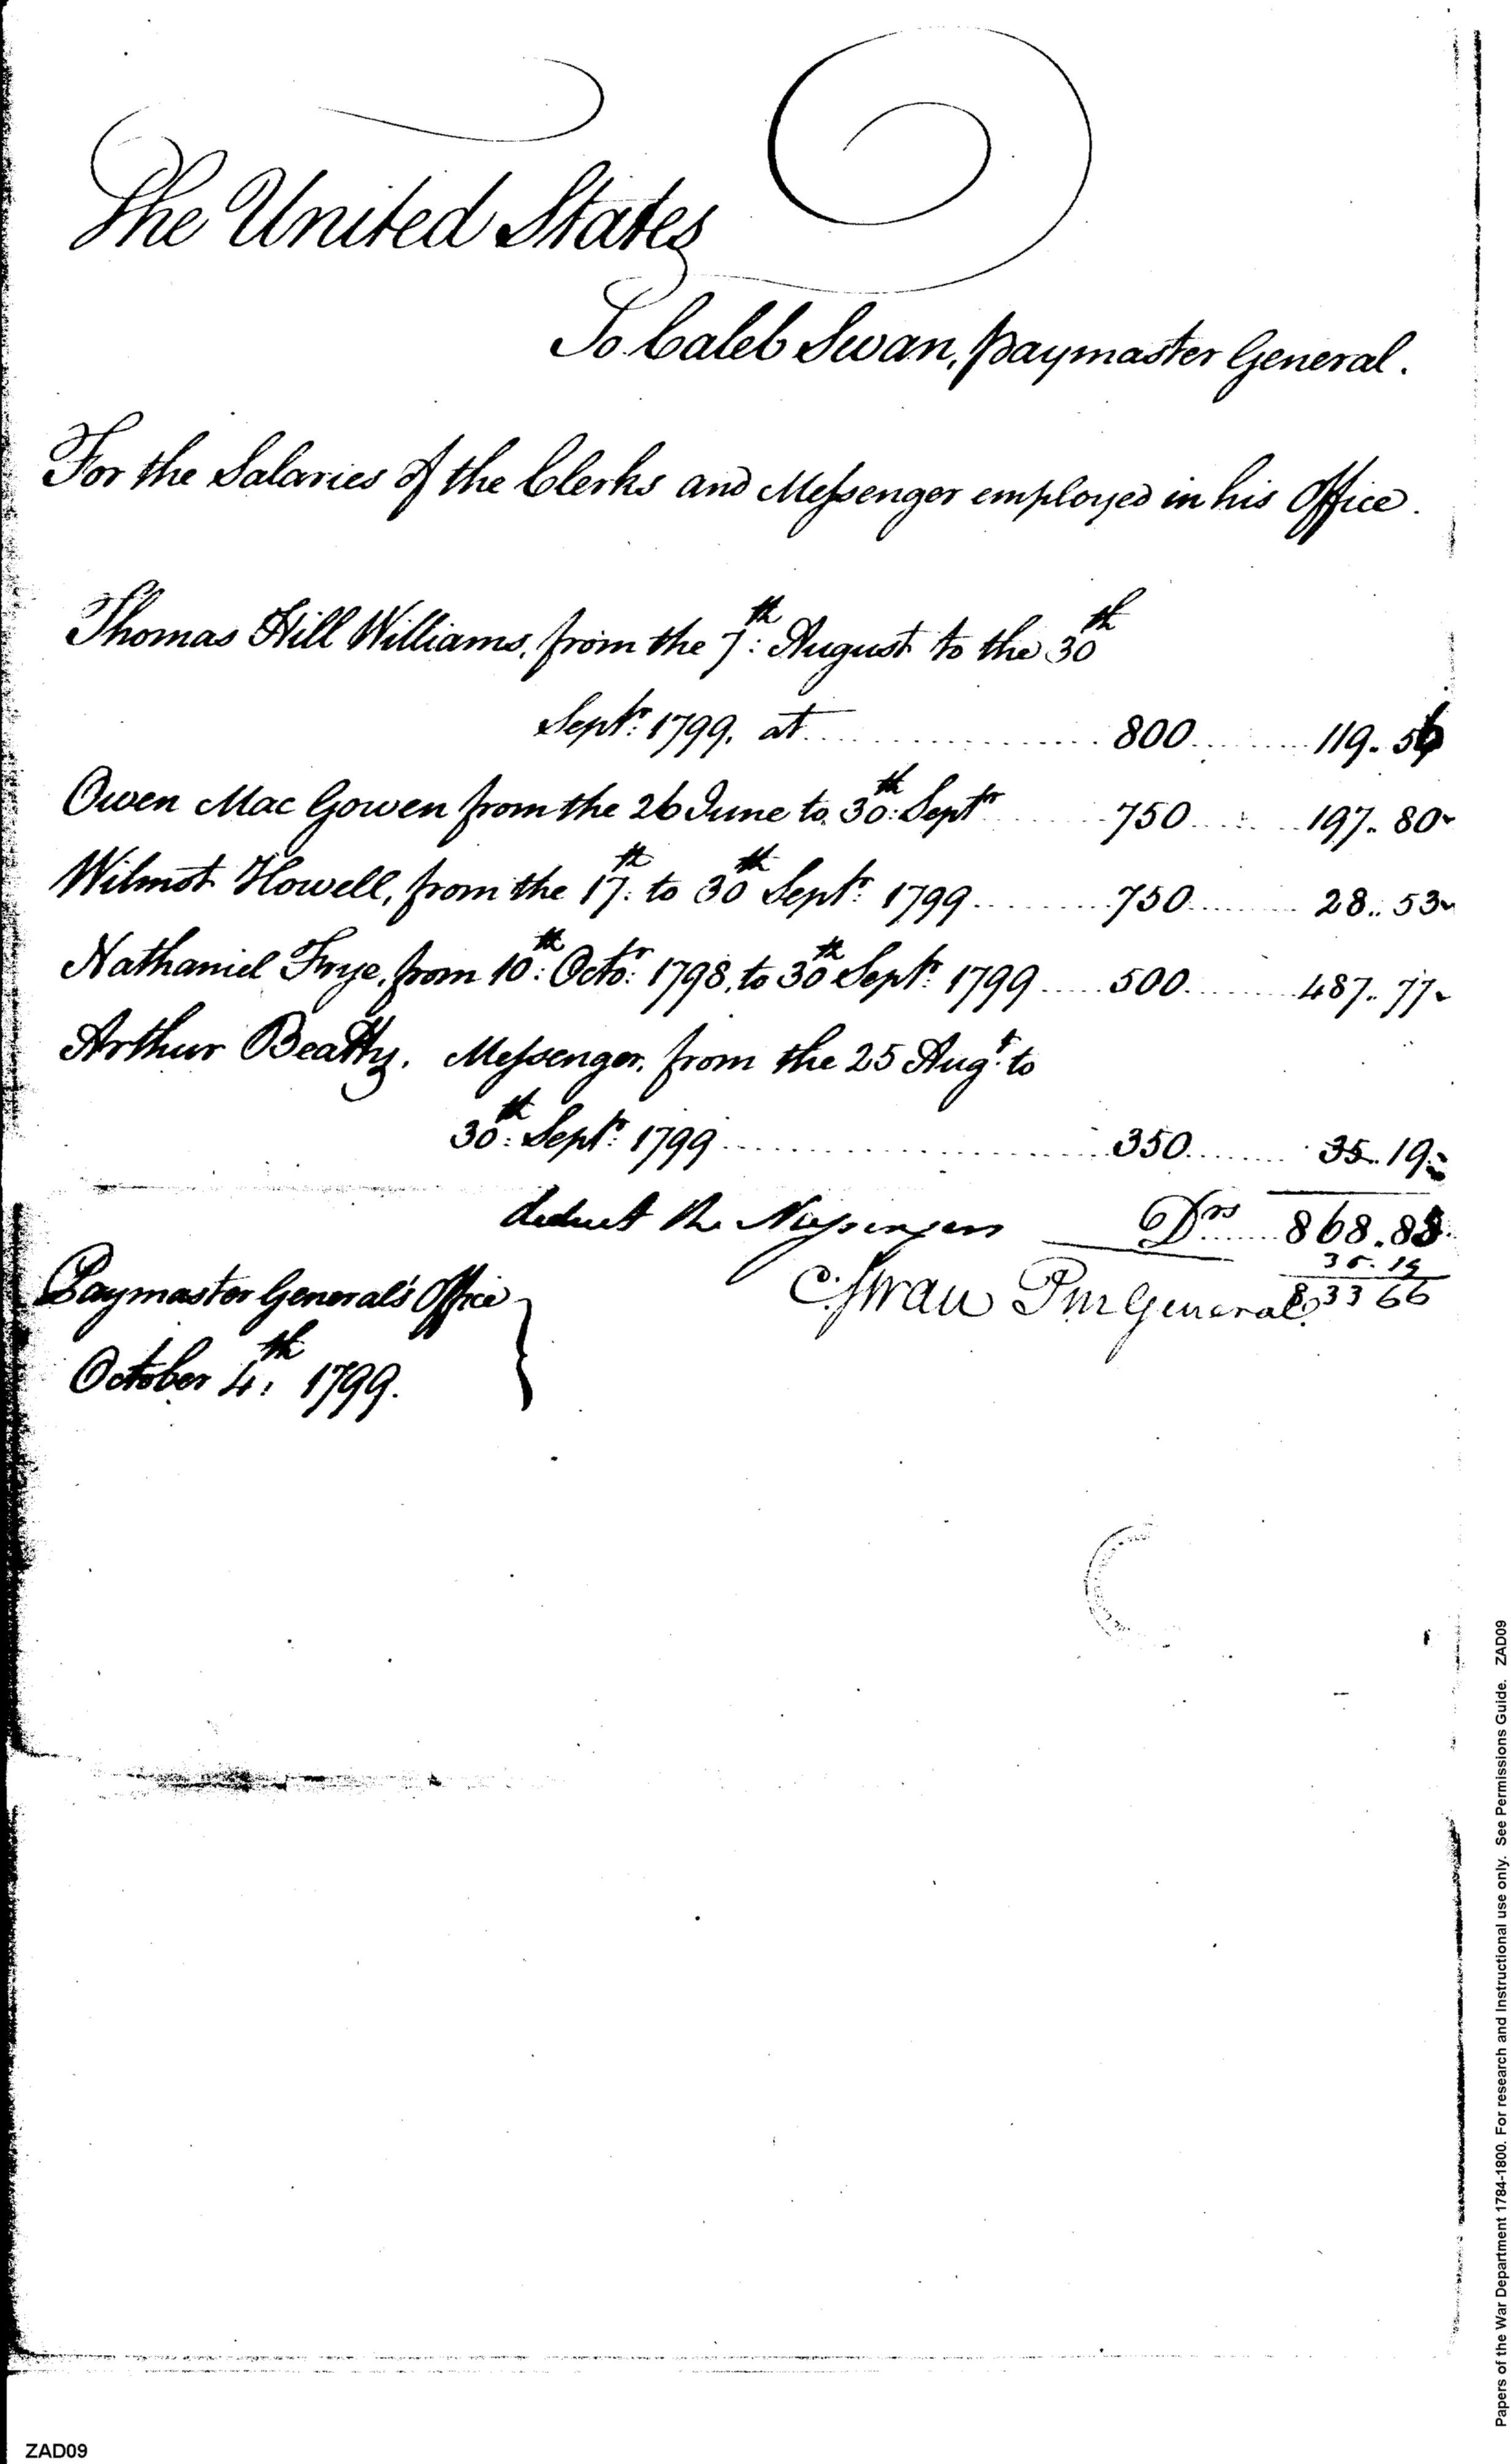 The United States
To Caleb Swan, paymaster General.
For the Salaries of the Clerks and Messenger employed in his Office.
Thomas Hill Williams, from the 7th: August to the 30th
Septr: 1799. at .......... 800 ....... 119. 56
Owen Mac Gowen from the 26 June to 30th: Septr ..... 750 ..... 197. 80
Wilmot Howell, from the 17th: to 30th Septr: 1799 ....... 750 ....... 28.. 53
Nathaniel Frye, from 10th: Octor: 1798, to 30th Septr: 1799 .... 500 ....... 487. 77
Arthur Beatty, Messenger, from the 25 Augt: to
30th: Septr: 1799 .......... 350 ....... 35.. 19
deduct the Messengers Drs ..... 868. 85
35. 19
C. Swan PmGeneral. 833 66
Paymaster General's Office
October 4th: 1799.
Papers of the War Department 1784-1800. For research and Instructional use only. See Permissions Guide. ZAD09
ZAD09